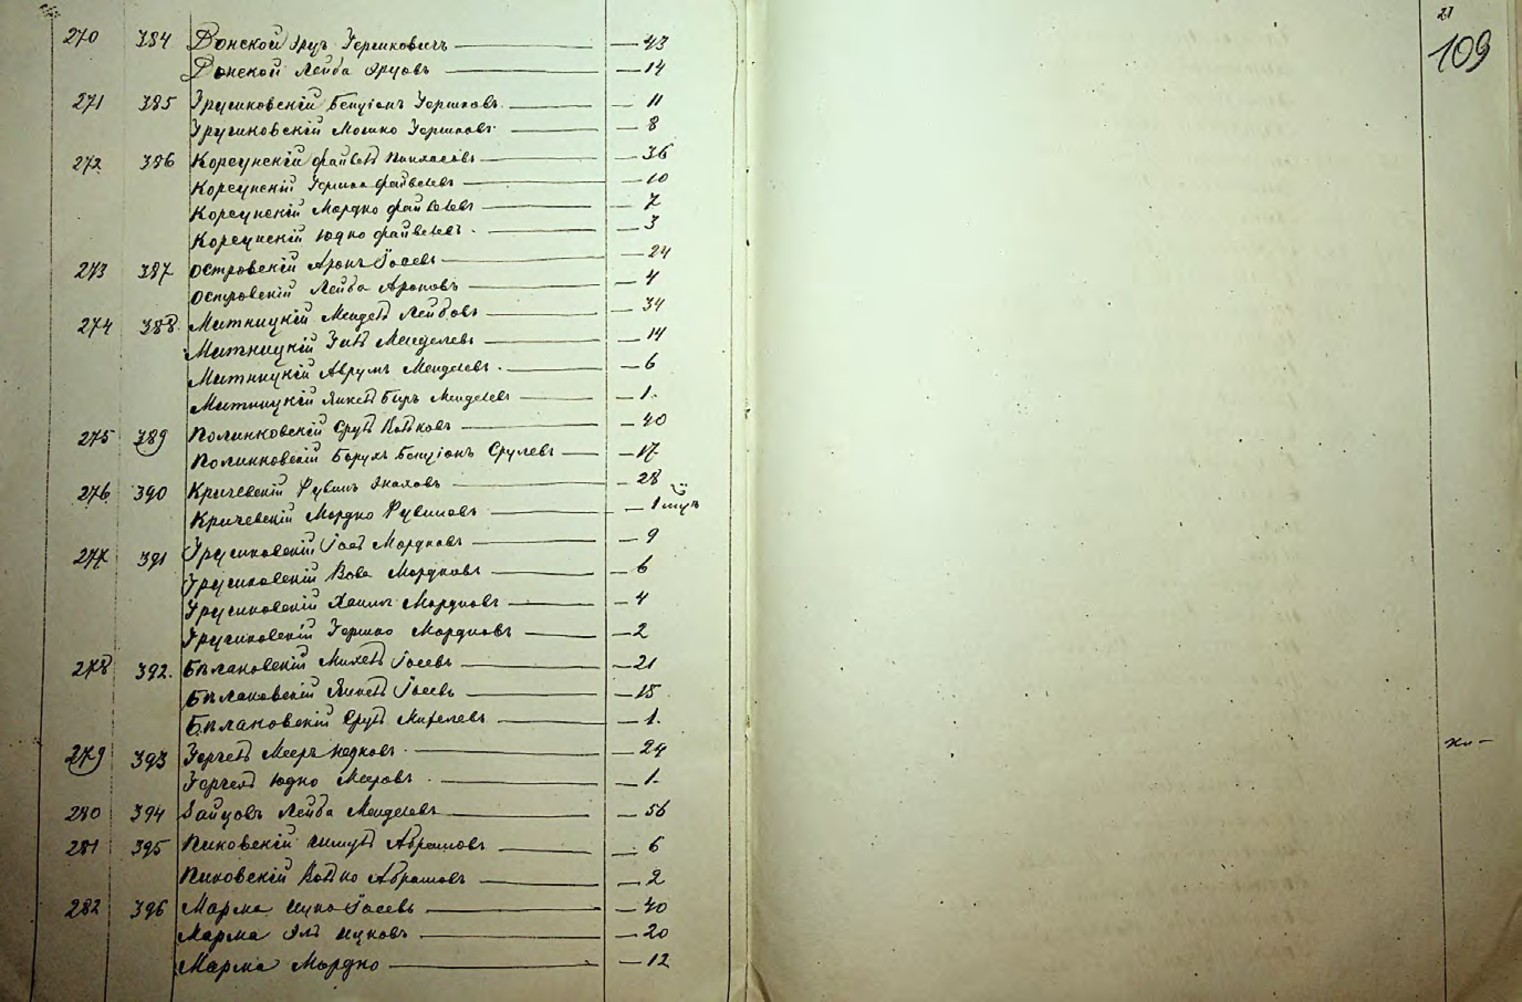 27
109
270 384 Донской Гершковичъ — 43
Донской Лейба — 14
271 385 Грушковскій Бенціонъ Гершковъ — 11
Грушковскій Мошко Гершковъ — 8
272 386 Корсунскій Файвель Пинхасовъ — 36
Корсунскій Гершко Файвелевъ — 10
Корсунскій Мордко Файвелевъ — 7
Корсунскій Юдко Файвелевъ — 3
273 387 Островскій Аронъ Іосевъ — 24
Островскій Лейба Ароновъ — 4
274 388 Митницкій Мендель Лейбовъ — 34
Митницкій Менделевъ — 14
Митницкій Аврумъ Менделевъ — 6
Митницкій Янкель Беръ Менделевъ — 1
275 389 Полинковскій Сруль Волковъ — 40
Полинковскій Борухъ Бенціонъ Срулевъ — 17
276 390 Кричевскій Рувинъ — 28
Кричевскій Мордко Рувиновъ — 1
277 391 Грушковскій Іось Мордковъ — 9
Грушковскій Вова Мордковъ — 6
Грушковскій Хаимъ Мордковъ — 4
Грушковскій Гершко Мордковъ — 2
278 392. Бѣлановскій Михель Іосевъ — 21
Бѣлановскій Янкель Іосевъ — 15
Бѣлановскій Сруль Михелевъ — 1
279 393 Мееръ — 24
Юдко Мееровъ — 1
280 394 Зайцовъ Лейба Менделевъ — 56
281 395 Пиковскій Шмуль Абрамовъ — 6
Пиковскій Волько Абрамовъ — 2
282 396 Марма Ицко Іосевъ — 40
Марма Ицковъ — 20
Марма Мордко — 12